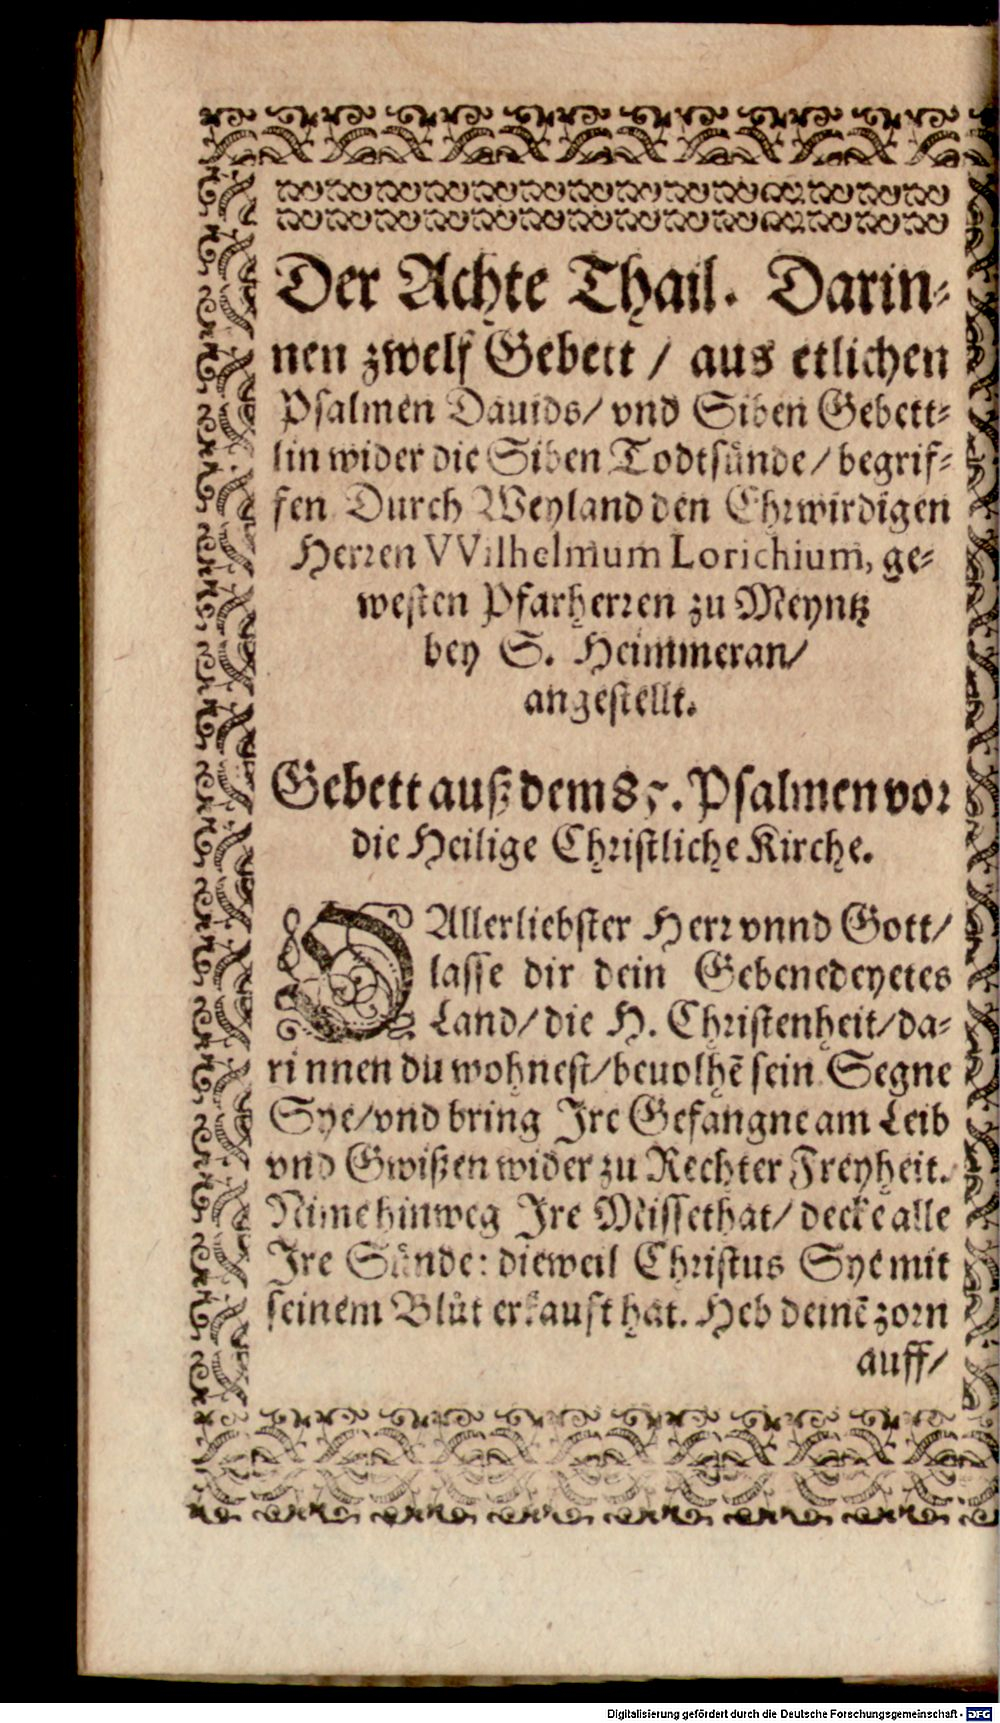 Der Achte Thail. Darin-
nen zwelf Gebett / aus etlichen
Psalmen Dauids/ vnd Siben Gebett-
lin wider die Siben Todtsünde/ begrif-
fen Durch Weyland den Ehrwirdigen
Herren VVilhelmum Lorichium, ge-
westen Pfarherren zu Meyntz
bey S. Heimmeran/
angestellt.
Gebett auß dem 85. Psalmen vor
die Heilige Christliche Kirche.
O Allerliebster Herr vnnd Gott/
lasse dir dein Gebenedeyetes
Land/ die H. Christenheit/ da-
rinnen du wohnest/ beuolhẽ sein Segne
Sye/ vnd bring Ire Gefangne am Leib
vnd Gwißen wider zu Rechter Freyheit.
Nime hinweg Ire Missethat/ decke alle
Ire Sünde: dieweil Christus Sye mit
seinem Blůt erkauft hat. Heb deinẽ zorn
auff/
Digitalisierung gefördert durch die Deutsche Forschungsgemeinschaft - DFG